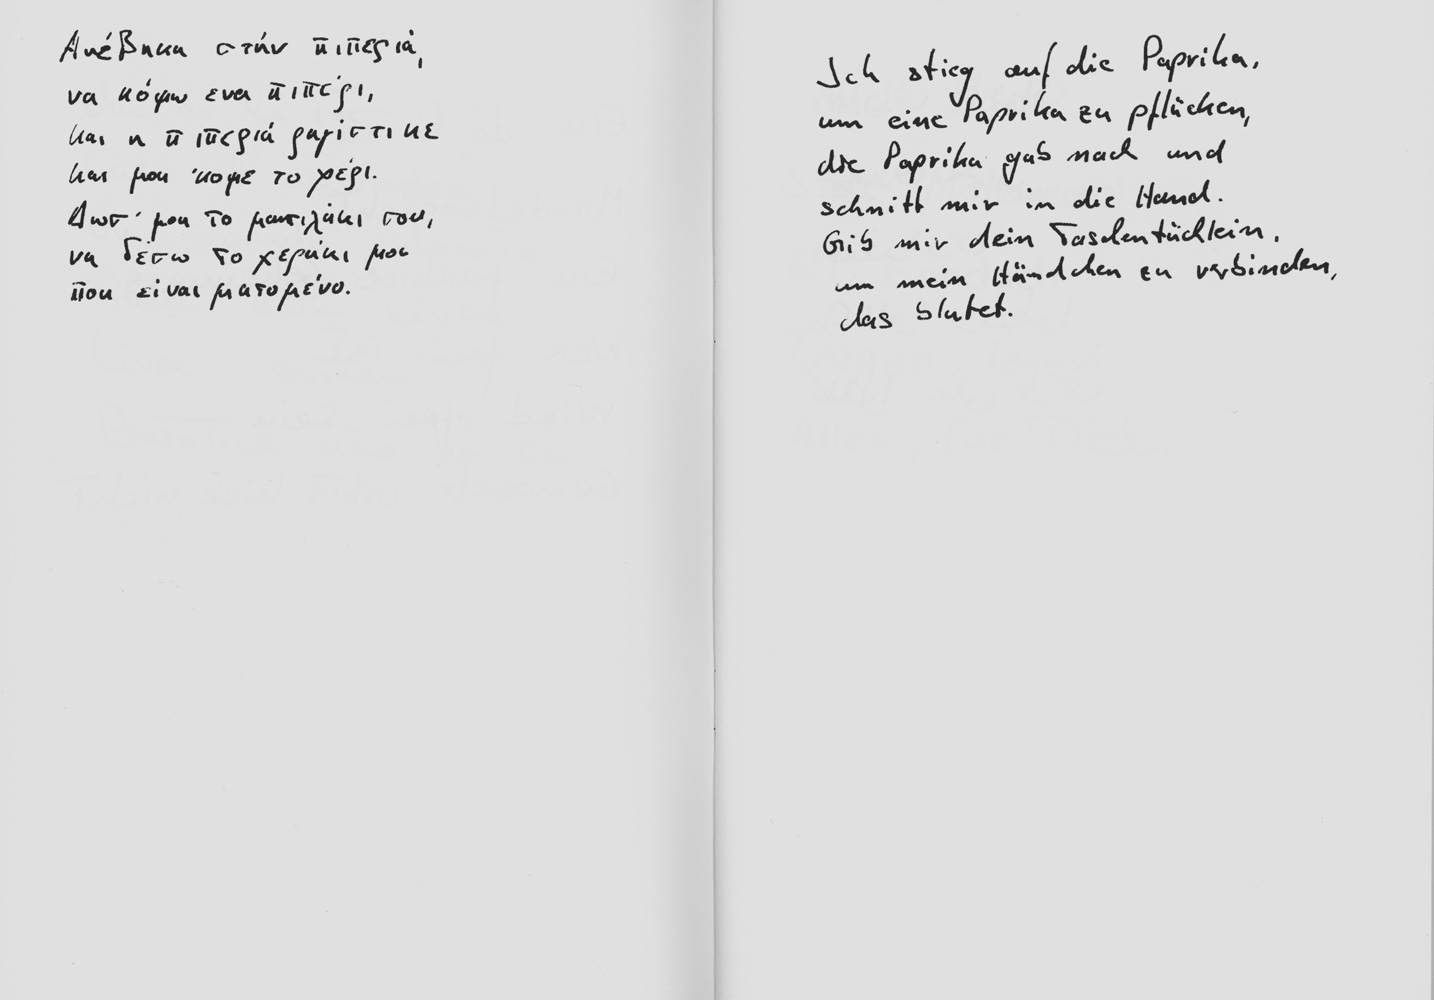 Ανέβηκα στήν πιπεριά,
να κόψω ενα πιπέρι,
και η πιπεριά ραγίστικε
και μου 'κοψε το χέρι.
Δωσ' μου το μαντιλάκι σου,
να δέσω το χεράκι μου
που είναι ματομένο.
Ich stieg auf die Paprika,
um eine Paprika zu pflücken,
die Paprika gab nach und
schnitt mir in die Hand.
Gib mir dein Taschentüchlein,
um mein Händchen zu verbinden,
das blutet.